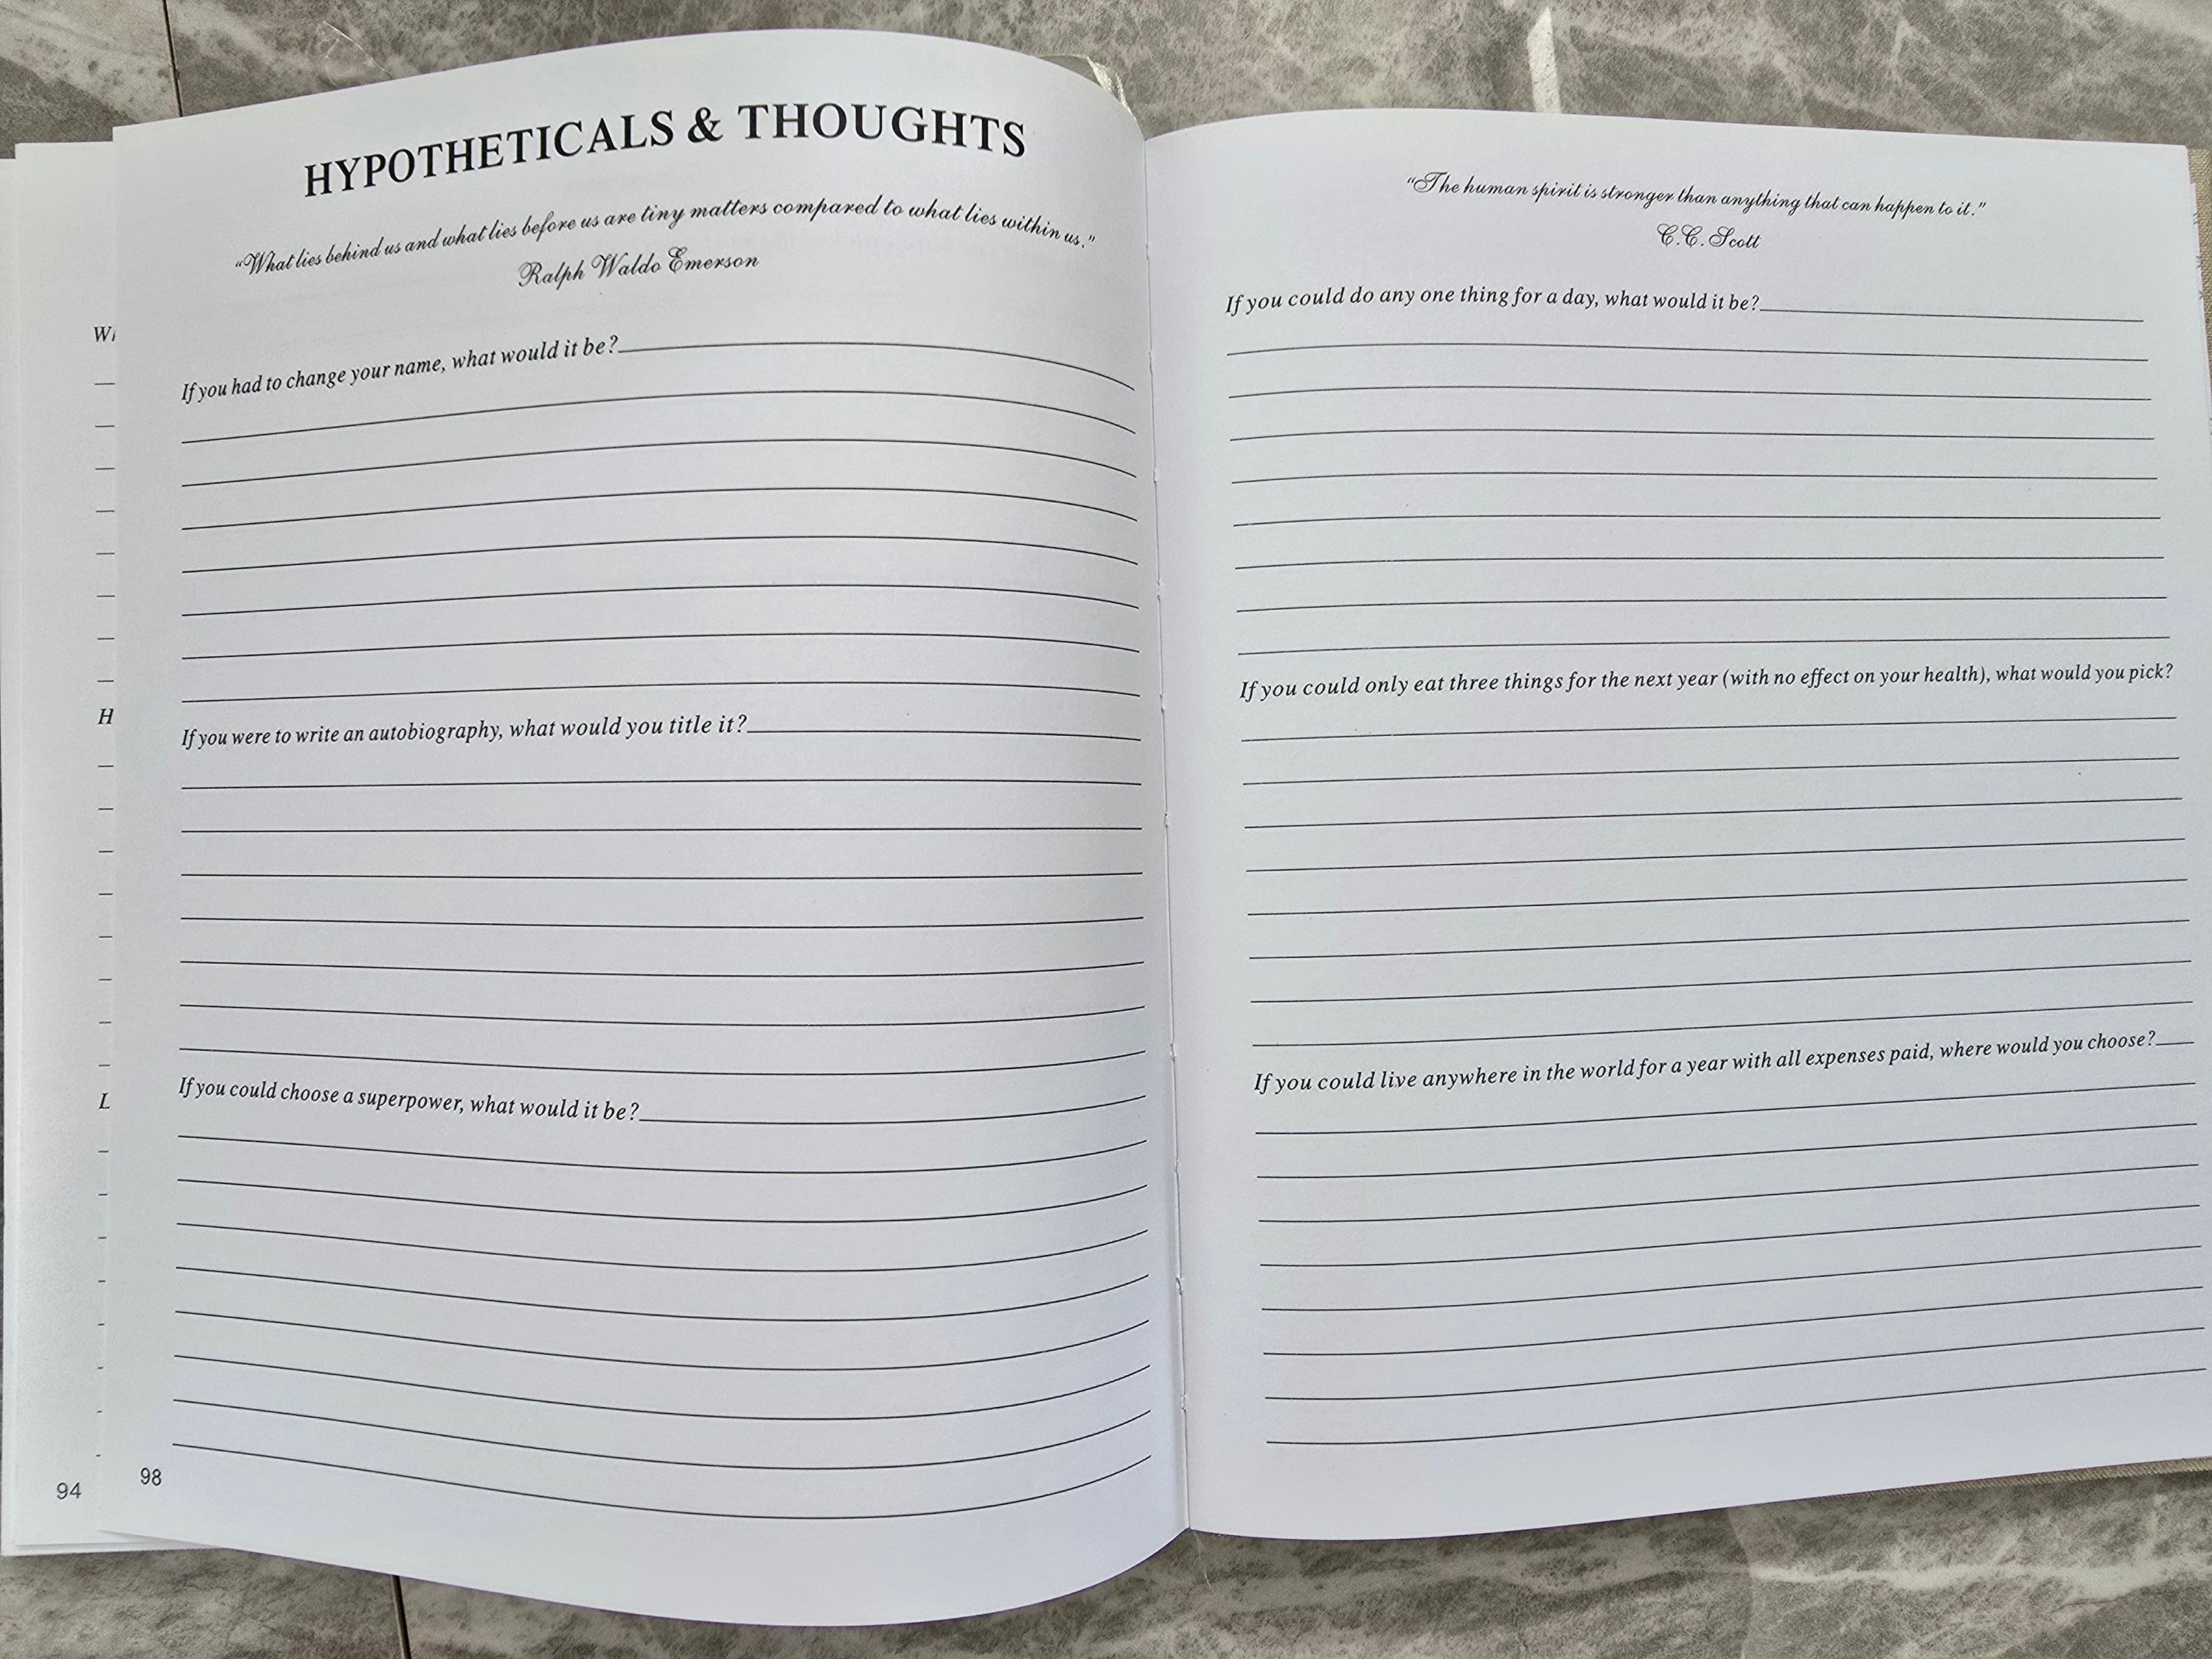 HYPOTHETICALS & THOUGHTS
“What lies behind us and what lies before us are tiny matters compared to what lies within us.”
Ralph Waldo Emerson
If you had to change your name, what would it be?
If you were to write an autobiography, what would you title it?
If you could choose a superpower, what would it be?
98
Wh
H
L
94
“The human spirit is stronger than anything that can happen to it.”
C.C. Scott
If you could do any one thing for a day, what would it be?
If you could only eat three things for the next year (with no effect on your health), what would you pick?
If you could live anywhere in the world for a year with all expenses paid, where would you choose?